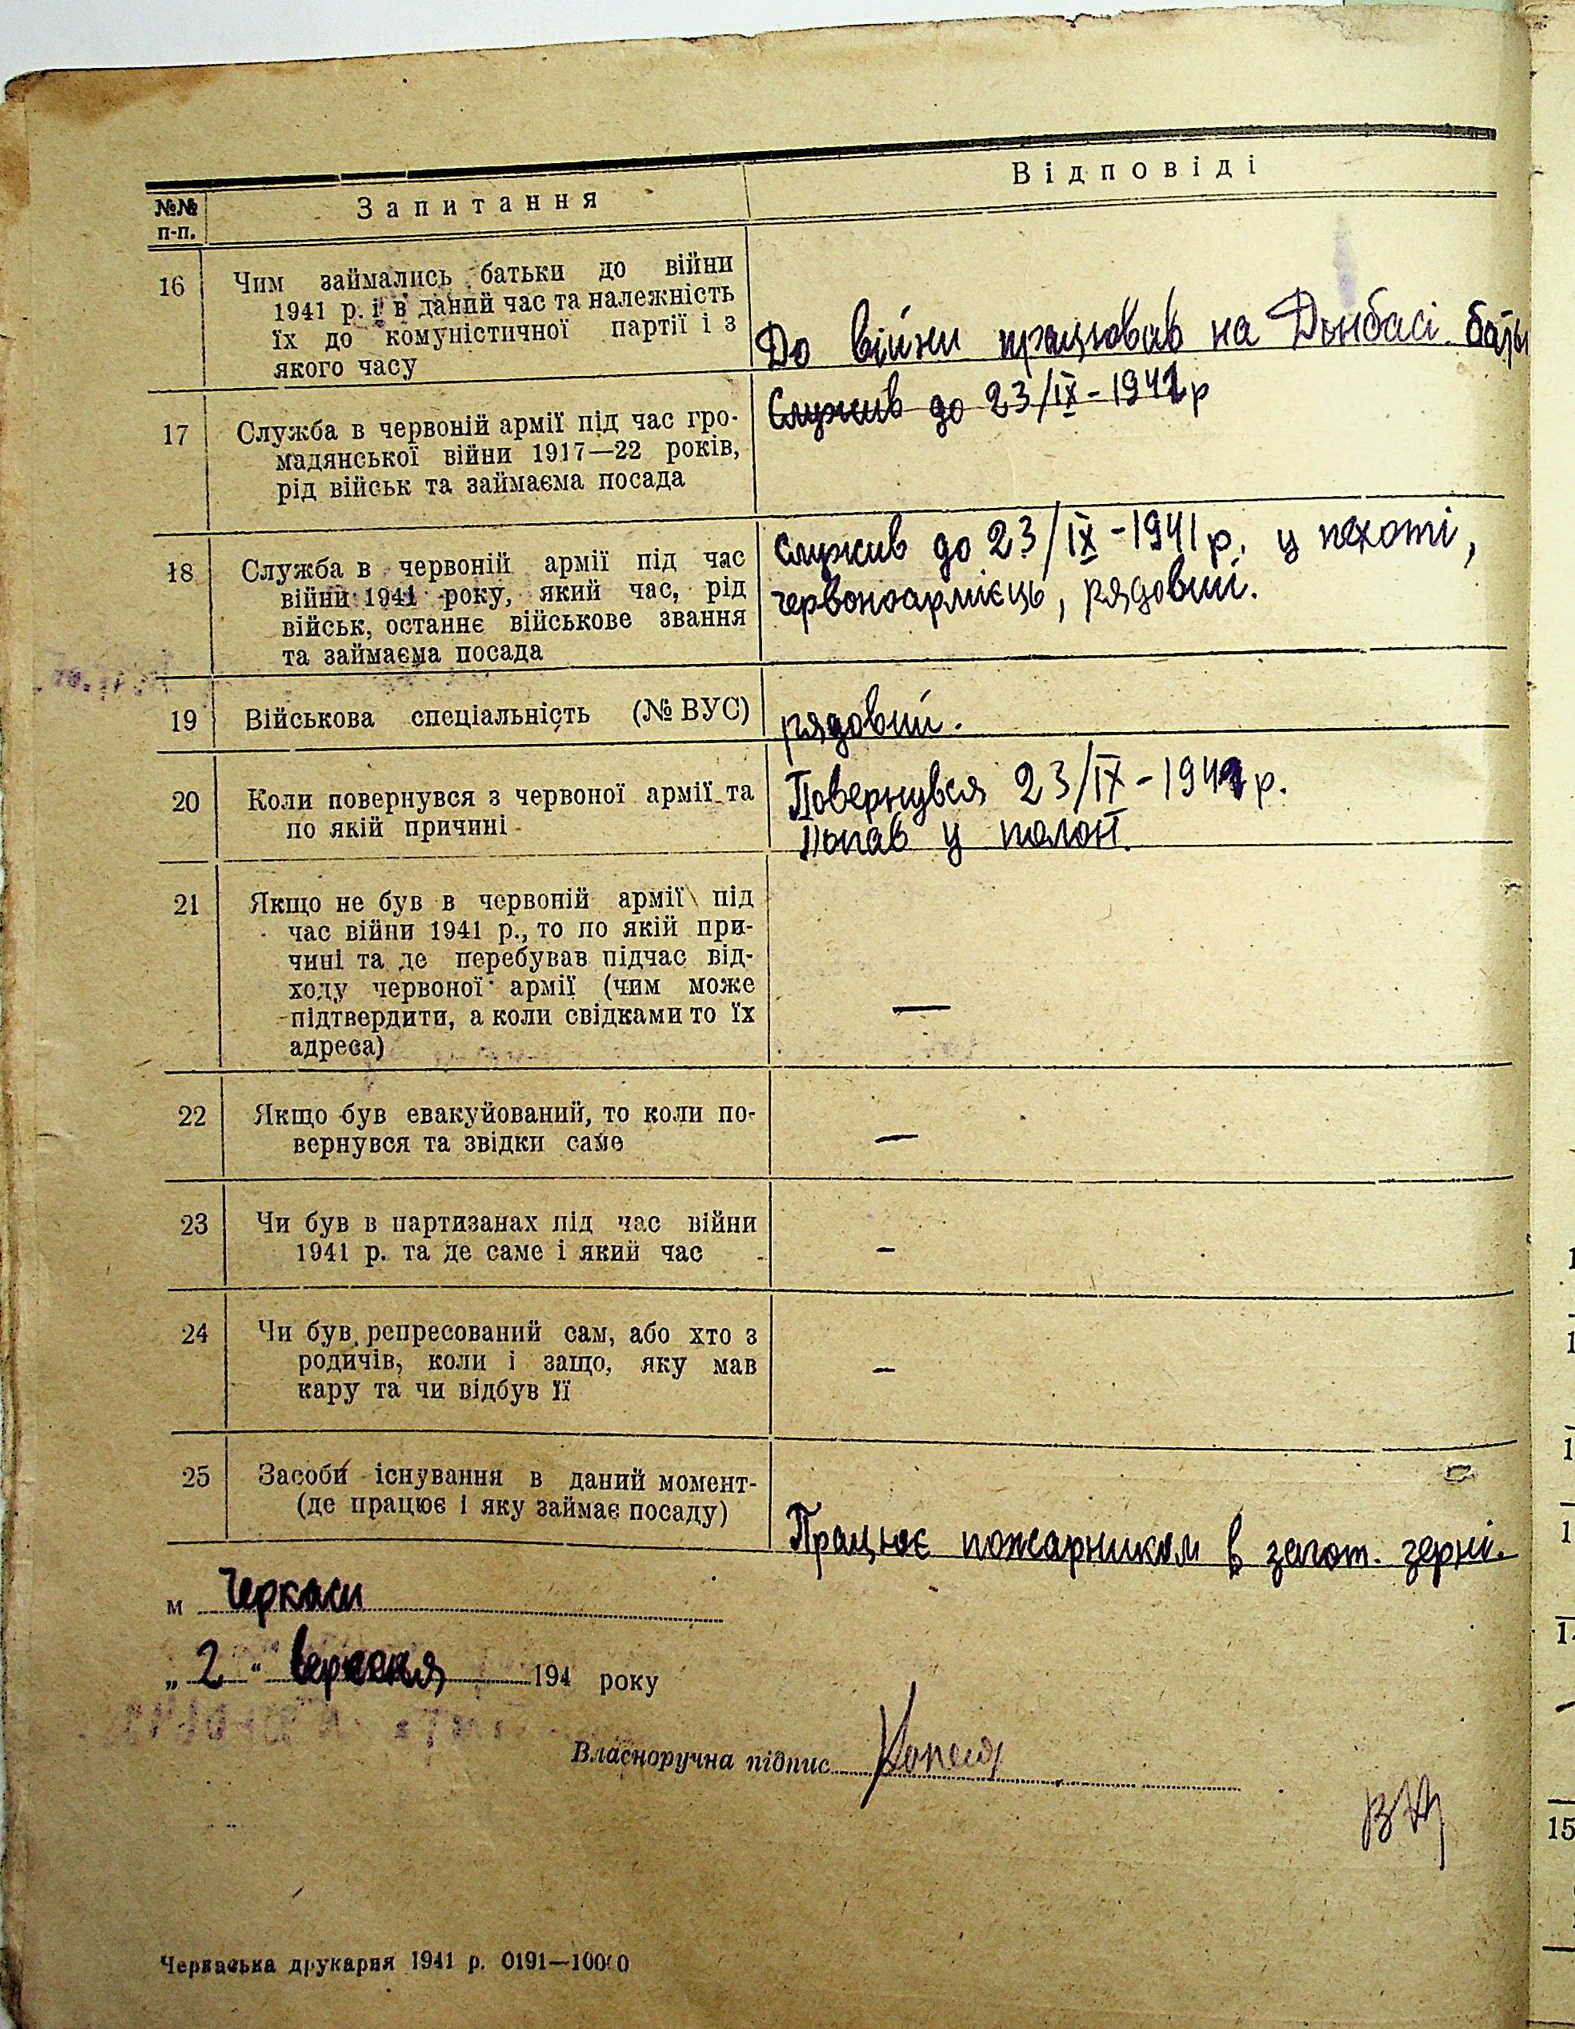 Відповіді
№№ Запитання
п-п.
16 Чим займались батьки до війни
1941 р. і в даний час та належність
їх до комуністичної партії і з
якого часу
До війни працював на Донбасі
17 Служба в червоній армії під час гро-
мадянської війни 1917—22 років,
рід військ та займаєма посада
Служив до 23/IX-1941 р
18 Служба в червоній армії під час
війни 1941 року, який час, рід
військ, останнє військове звання
та займаєма посада
Служив до 23/IX-1941 р. у пехоті,
червоноармієць, рядовий.
19 Військова спеціальність (№ ВУС)
рядовий.
20 Коли повернувся з червоної армії та
по якій причині
Повернувся 23/IX-1941 р.
Попав у полон.
21 Якщо не був в червоній армії під
час війни 1941 р., то по якій при-
чині та де перебував підчас від-
ходу червоної армії (чим може
підтвердити, а коли свідками то їх
адреса)
—
22 Якщо був евакуйований, то коли по-
вернувся та звідки саме
—
23 Чи був в партизанах під час війни
1941 р. та де саме і який час
–
24 Чи був репресований сам, або хто з
родичів, коли і защо, яку мав
кару та чи відбув її
–
25 Засоби існування в даний момент-
(де працює і яку займає посаду)
Працює пожарником в загот. зерні.
м Черкаси
„ 2 “ вересня 194 року
Власноручна підпис
Черкаська друкарня 1941 р. 0191—10000